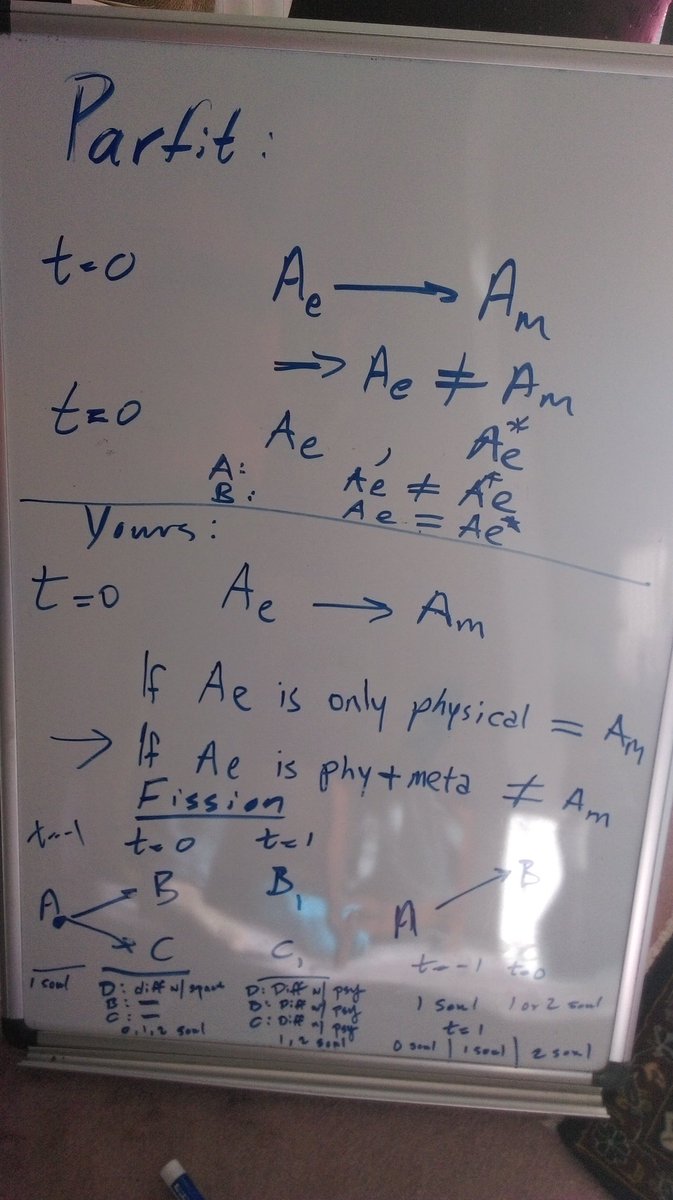 Parfit:
t=0 Ae → Am
⇒ Ae ≠ Am
t=0 Ae , Ae*
A: Ae ≠ Ae*
B: Ae = Ae*
Yours:
t=0 Ae → Am
If Ae is only physical = Am
→ If Ae is phy+meta ≠ Am
Fission
t=-1 t=0 t=1
A B C
B1
C1
A → B
t=-1 t=0
1 soul
D: diff w/ space
B: =
C: =
0,1,2 soul
D: Diff w/ psy
B: Diff w/ psy
C: Diff w/ psy
1,2 soul
1 soul 1 or 2 soul
t=1
0 soul | 1 soul | 2 soul